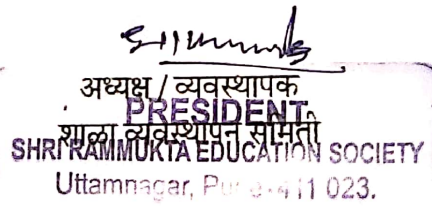 अध्यक्ष / व्यवस्थापक
PRESIDENT
शाळा व्यवस्थापन समिती
SHRI RAMMUKTA EDUCATION SOCIETY
Uttamnagar, Pune-411 023.